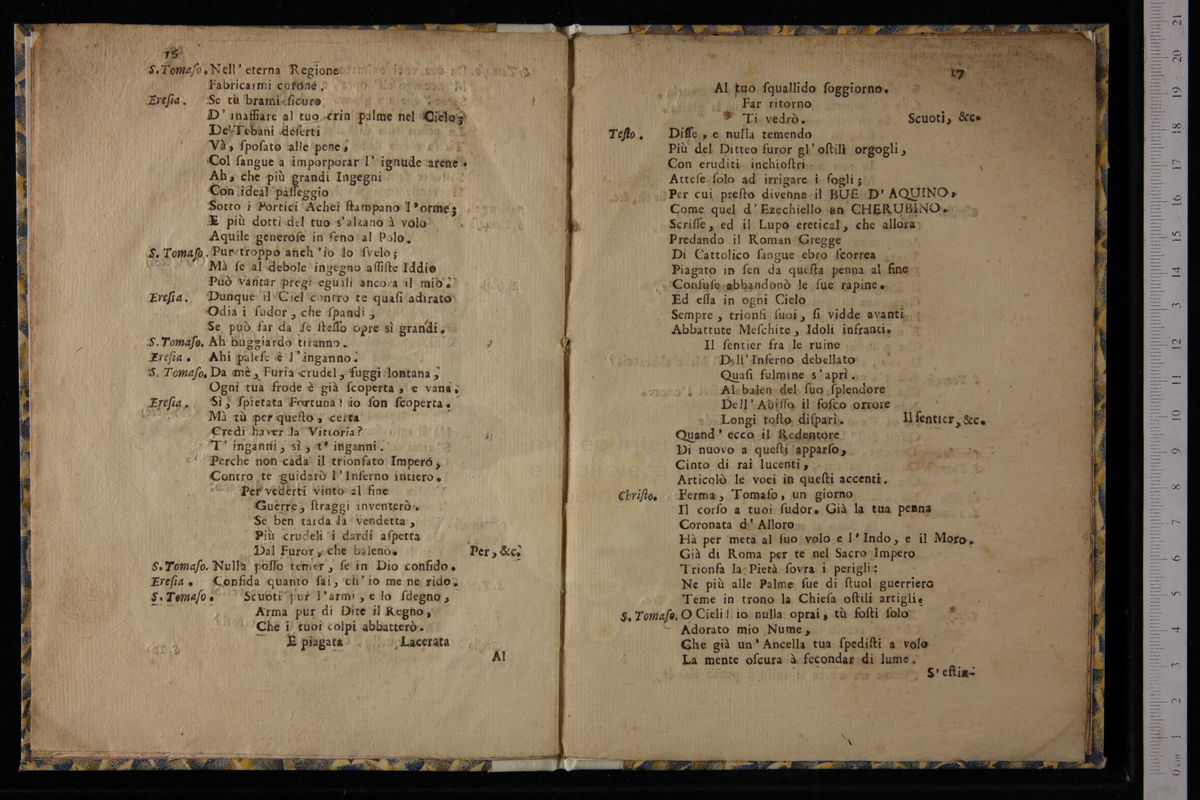 16
S. Tomaſo. Nell' eterna Regione
Fabricarmi corone.
Ereſia. Se tù brami ſicuro
D' inaffiare al tuo crin palme nel Cielo;
De' Tebani deſerti
Và, ſpoſato alle pene,
Col ſangue a imporporar l' ignude arene.
Ah, che più grandi Ingegni
Con ideal paſſeggio
Sotto i Portici Achei ſtampano l'orme;
E più dotti del tuo s'alzano à volo
Aquile generoſe in ſeno al Polo.
S. Tomaſo. Pur troppo anch'io lo ſvelo;
Mà ſe al debole ingegno aſſiſte Iddio
Può vantar pregi eguali ancora il mio.
Ereſia. Dunque il Ciel contro te quaſi adirato
Odia i ſudor, che ſpandi,
Se può far da ſe ſteſſo opre sì grandi.
S. Tomaſo. Ah buggiardo tiranno.
Ereſia. Ahi paleſe è l'inganno.
S. Tomaſo. Da mè, Furia crudel, fuggi lontana,
Ogni tua frode è già ſcoperta, e vana.
Ereſia. Sì, ſpietata Fortuna! io ſon ſcoperta.
Mà tù per queſto, certa
Credi haver la Vittoria?
T' inganni, sì, t' inganni.
Perche non cada il trionfato Imperó,
Contro te guidarò l'Inferno intiero.
Per vederti vinto al fine
Guerre, ſtraggi inventerò.
Se ben tarda la vendetta,
Più crudeli i dardi aſpetta
Dal Furor, che balenò. Per, &c.
S. Tomaſo. Nulla poſſo temer, ſe in Dio confido.
Ereſia. Confida quanto ſai, ch'io me ne rido.
S. Tomaſo. Scuoti pur l'armi, e lo ſdegno,
Arma pur di Dite il Regno,
Che i tuoi colpi abbatterò.
E piagata Lacerata
Al
17
Al tuo ſquallido ſoggiorno.
Far ritorno
Ti vedrò. Scuoti, &c.
Teſto. Diſſe, e nulla temendo
Più del Ditteo furor gl'oſtili orgogli,
Con eruditi inchioſtri
Atteſe ſolo ad irrigare i fogli;
Per cui preſto divenne il BUE D'AQUINO,
Come quel d'Ezechiello un CHERUBINO.
Scriſſe, ed il Lupo eretical, che allora
Predando il Roman Gregge
Di Cattolico ſangue ebro ſcorrea
Piagato in ſen da queſta penna al fine
Confuſe abbandonò le ſue rapine.
Ed eſſa in ogni Cielo
Sempre, trionfi ſuoi, ſi vidde avanti
Abbattute Meſchite, Idoli infranti.
Il ſentier fra le ruine
Dell'Inferno debellato
Quaſi fulmine s'aprì.
Al balen del ſuo ſplendore
Dell'Abiſſo il foſco orrore
Longi toſto diſparì. Il ſentier, &c.
Quand' ecco il Redentore
Di nuovo a queſti apparſo,
Cinto di rai lucenti,
Articolò le voci in queſti accenti.
Chriſto. Ferma, Tomaſo, un giorno
Il corſo a tuoi ſudor. Già la tua penna
Coronata d' Alloro
Hà per meta al ſuo volo e l' Indo, e il Moro.
Già di Roma per te nel Sacro Impero
Trionfa la Pietà ſovra i perigli:
Ne più alle Palme ſue di ſtuol guerriero
Teme in trono la Chieſa oſtili artigli.
S. Tomaſo. O Cieli! io nulla oprai, tù foſti ſolo
Adorato mio Nume,
Che già un' Ancella tua ſpediſti a volo
La mente oſcura à fecondar di lume.
S' eſtin-